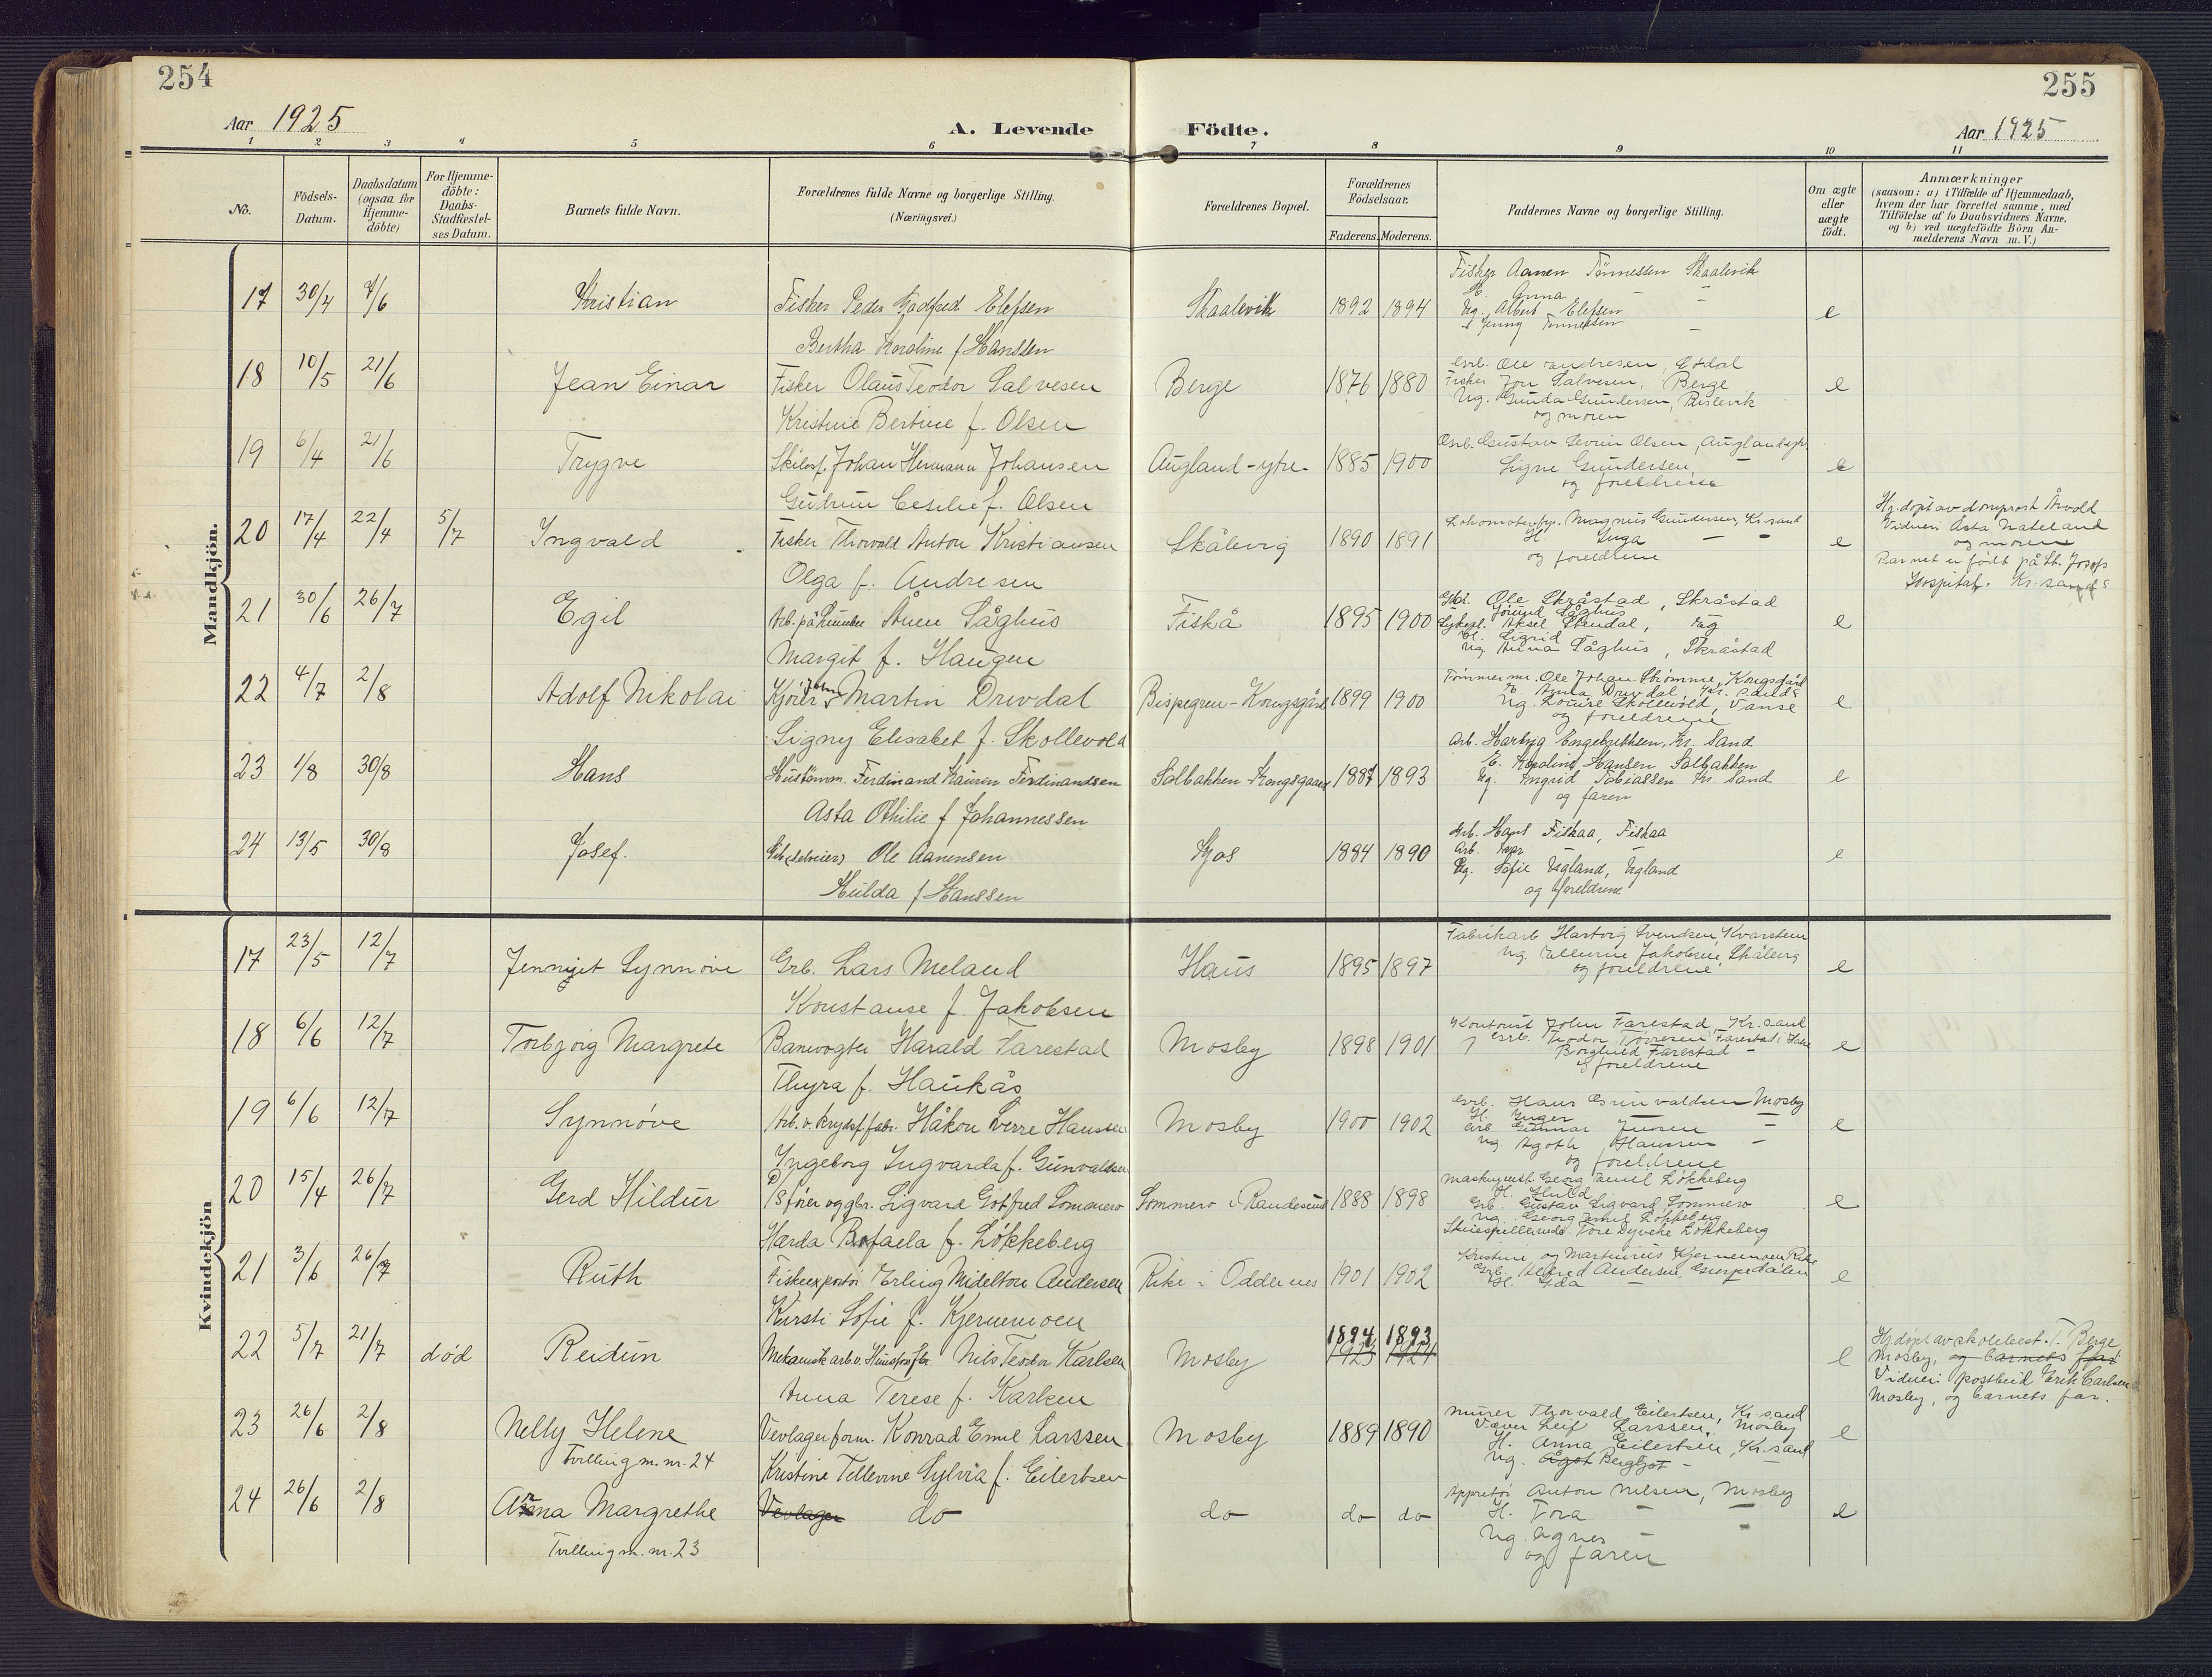 254
255
Aar 1925
A. Levende
Födte.
Aar 1925
1 2 3 4 5 6 7 8 9 10 11
No.
Födsels-Datum.
Daabsdatum (ogsaa for Hjemme-döbte)
For Hjemme-döbte: Daabs-Stadfæstel-ses Datum.
Barnets fulde Navn.
Forældrenes fulde Navne og borgerlige Stilling. (Næringsvei.)
Forældrenes Bopæl.
Forældrenes Födselsaar.
Faderens. Moderens.
Faddernes Navne og borgerlige Stilling.
Om ægte eller uægte födt.
Anmærkninger
(saasom: a) i Tilfælde af Hjemmedaab,
hvem der har forrettet samme, med
Tilföielse af to Daabsvidners Navne,
og b) ved uægtefödte Börn An-
melderens Navn m. V.)
Mandkjön.
17 30/4 7/6 Kristian Fisker Peder Godfred Elefsen Skaalevik 1892 1894 e
Bertha Karoline f Hanssen
Fisker Aanen Tönnessen Skaalevik
Anna
Ug. Albert Elefsen
Jenny Tönnessen
18 10/5 21/6 Jean Einar Fisker Olaus Teodor Salvesen Berge 1876 1880 e
Kristine Bertine f. Olsen
Ole Andresen,
Fisker Jon Salvesen, Berge
Ug. Gunda Gundersen,
og moren
19 6/4 21/6 Trygve Johan Hermann Johansen Augland-ytre 1885 1900 e
Gudrun Cecilie f. Olsen
Gustav Severin Olsen, Augland
Signe Gundersen,
og foreldrene
20 17/4 22/4 5/7 Ingvald Fisker Thorvald Anton Kristiansen Skålevig 1890 1891 e
Olga f. Andresen
Magnus Gundersen, Kr.sand
H. Inga
og foreldrene
Hj. döpt av domprost Årvold
Vidner: Åsta Nateland
og moren
Barnet er födt på St. Josefs
Hospital. Kr.sand S
21 30/6 26/7 Egil Arb. på Aanen Såghus Fiskå 1895 1900 e
Margit f. Haugen
Ole Skråstad, Skråstad
Jorund Såghus
Aksel Stendal, Våg
H. Sigrid
Ug. Anna Såghus, Skråstad
22 4/7 2/8 Adolf Nikolai Kjörer John Martin Drivdal Bispegren-Kongsgård 1899 1900 e
Signy Elisabet f. Skollevold
Ole Johan Strömme, Kongsgård
Anna Drivdal, Kr.sand S
Ug. Louise Skollevold, Vanse
og foreldrene
23 1/8 30/8 Hans Hustömm. Ferdinand Laurin Ferdinandsen Solbakken-Kongsgaard 1887 1893 e
Asta Othilie f Johannessen
Arb. Hartvig Engebrethsen, Kr. Sand
E. Karoline Hansen Solbakken
Ug. Ingrid Tobiassen Kr. Sand
og faren
24 13/5 30/8 Josef. Grb. (selveier) Ole Aanensen Kjos 1884 1890 e
Hulda f Hanssen
Grb. Hans Fiskaa, Fiskaa
Arb.
Ug. Sofie Vigland, Vigland
og foreldrene
Kvindekjön
17 23/5 12/7 Synnöve Grb. Lars Meland Haus 1895 1897 e
Konstanse f. Jakobsen
Fabrikarb Hartvig Svendsen, Kvarstein
Ug. Jakobsen, Skålevig
og foreldrene
18 6/6 12/7 Torbjörg Margrete Banevogter Harald Farestad Mosby 1898 1901 e
Thyra f. Haukås
Kontorist John Farestad, Kr.sand
Teodor Farestad
Borghild Farestad
og foreldrene
19 6/6 12/7 Synnöve Arb. v. krydsf.fabr. Håkon Sverre Hansen Mosby 1900 1902 e
Ingeborg Ingvarda f. Gunvaldsen
Grb. Hans Gunvaldsen Mosby
H. Inger
Arb Gunnar Jensen
Ug. Agoth Hansen
og foreldrene
20 15/4 26/7 Gerd Hildur Sigvard Gotfred Sommero Sommero i Randesund 1888 1898 e
Hærda Rafaela f. Lökkeberg
Maskinmest. Georg Emil Lökkeberg
H. Huld
Grb. Gustav Sigvard Sommero
Ug. Georg Emil Lökkeberg
Skuespillerinde Tore Dyveke Lökkeberg
21 3/6 26/7 Ruth Fiskeexportör Erling Midelton Andersen Rike i Oddernes 1901 1902 e
Kirsti Sofie f. Kjernemoen
Kristine og Martinius Kjernemoen Rike
Grb. Alfred Andersen,
H. Ida
22 5/7 21/7 död Reidun Mekanisk arb. v. Hunsfos fbr. Nils Teodor Karlsen Mosby 1894 1893 e
1923 1924
Anna Terese f. Karlsen
Hj.döpt av skolebest. T. Berge
Mosby, og barnets far
Vidner: postbud Erik Carlsen
Mosby, og barnets far.
23 26/6 2/8 Nelly Helene Vevlagerform. Konrad Emil Larssen Mosby 1889 1890 e
Tvilling m. nr. 24
Kristine Tellevine Sylvia f. Eilertsen
Murer Thorvald Eilertsen, Kr.sand
Væver Leif Larssen, Mosby
H. Anna Eilertsen, Kr.sand
Ug. Ågot Bergljot
24 26/6 2/8 Anna Margrethe Vevlager do do do do e
Tvilling m. nr. 23
Appretör Anton Nilsen, Mosby
H. Tora
Ug. Agnes
og faren